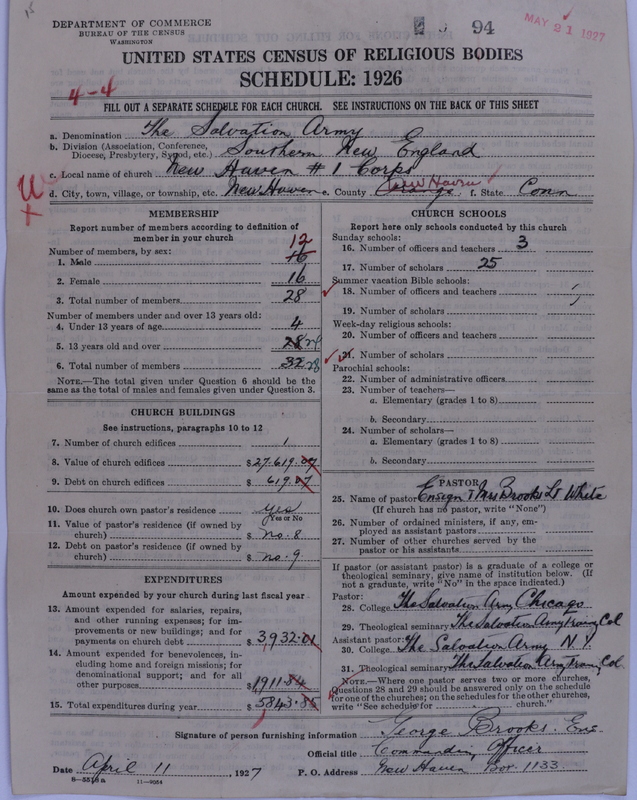 DEPARTMENT OF COMMERCE
BUREAU OF THE CENSUS
WASHINGTON
94
MAY 21 1927
UNITED STATES CENSUS OF RELIGIOUS BODIES
SCHEDULE: 1926
4-4
FILL OUT A SEPARATE SCHEDULE FOR EACH CHURCH. SEE INSTRUCTIONS ON THE BACK OF THIS SHEET
a. Denomination The Salvation Army
b. Division (Association, Conference, Diocese, Presbytery, Synod, etc.) Southern New England
c. Local name of church New Haven #1 Corps
d. City, town, village, or township, etc. New Haven e. County Orange New Haven f. State Conn
MEMBERSHIP
Report number of members according to definition of
member in your church
Number of members, by sex: 12
1. Male 16
2. Female 16
3. Total number of members 28
Number of members under and over 13 years old:
4. Under 13 years of age 4
5. 13 years old and over 28 24
6. Total number of members 32 28
NOTE.—The total given under Question 6 should be the
same as the total of males and females given under Question 3.
CHURCH BUILDINGS
See instructions, paragraphs 10 to 12
7. Number of church edifices 1
8. Value of church edifices $27.619.07
9. Debt on church edifices $619.07
10. Does church own pastor's residence yes
Yes or No
11. Value of pastor's residence (if owned by
church) $ no. 8
12. Debt on pastor's residence (if owned by
church) $ no. 9
EXPENDITURES
Amount expended by your church during last fiscal year
13. Amount expended for salaries, repairs,
and other running expenses; for im-
provements or new buildings; and for
payments on church debt $3,932.01
14. Amount expended for benevolences, in-
cluding home and foreign missions; for
denominational support; and for all
other purposes $1911.84
15. Total expenditures during year $5843.85
CHURCH SCHOOLS
Report here only schools conducted by this church
Sunday schools:
16. Number of officers and teachers 3
17. Number of scholars 25
Summer vacation Bible schools:
18. Number of officers and teachers
19. Number of scholars
Week-day religious schools:
20. Number of officers and teachers
21. Number of scholars
Parochial schools:
22. Number of administrative officers
23. Number of teachers—
a. Elementary (grades 1 to 8)
b. Secondary
24. Number of scholars—
a. Elementary (grades 1 to 8)
b. Secondary
PASTOR
25. Name of pastor Ensign & Mrs Brooks Lt White
(If church has no pastor, write "None")
26. Number of ordained ministers, if any, em-
ployed as assistant pastors
27. Number of other churches served by the
pastor or his assistants
If pastor (or assistant pastor) is a graduate of a college or
theological seminary, give name of institution below. (If
not a graduate, write "No" in the space indicated.)
Pastor:
28. College The Salvation Army Chicago
29. Theological seminary The Salvation Army Traing Col
Assistant pastor:
30. College The Salvation Army N.Y.
31. Theological seminary The Salvation Army Traing Col.
NOTE.—Where one pastor serves two or more churches,
Questions 28 and 29 should be answered only on the schedule
for one of the churches; on the schedules for the other churches,
write "See schedule for church."
Signature of person furnishing information George Brooks. Ens.
Official title Commanding Officer
Date April 11, 1927 P. O. Address New Haven Box. 1133.
8—5518a 11—9034